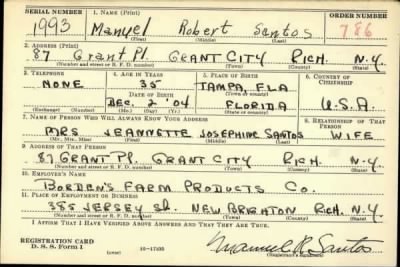 SERIAL NUMBER 1. NAME (Print) ORDER NUMBER
1993 Manuel Robert Santos 786
(First) (Middle) (Last)
2. ADDRESS (Print)
87 Grant Pl. GRANT CITY RICH. N.Y.
(Number and street or R. F. D. number) (Town) (County) (State)
3. TELEPHONE 4. AGE IN YEARS 5. PLACE OF BIRTH 6. COUNTRY OF CITIZENSHIP
NONE 35 TAMPA, FLA
DATE OF BIRTH (Town or county)
DEC. 2 '04 FLORIDA U.S.A.
(Exchange) (Number) (Mo.) (Day) (Yr.) (State or country)
7. NAME OF PERSON WHO WILL ALWAYS KNOW YOUR ADDRESS 8. RELATIONSHIP OF THAT PERSON
MRS JEANNETTE JOSEPHINE SANTOS WIFE
(Mr., Mrs., Miss) (First) (Middle) (Last)
9. ADDRESS OF THAT PERSON
87 GRANT Pl. GRANT CITY RICH. N.Y.
(Number and street or R. F. D. number) (Town) (County) (State)
10. EMPLOYER'S NAME
BORDEN'S FARM PRODUCTS CO.
11. PLACE OF EMPLOYMENT OR BUSINESS
385 JERSEY St. NEW BRIGHTON RICH. N.Y.
(Number and street or R. F. D. number) (Town) (County) (State)
I AFFIRM THAT I HAVE VERIFIED ABOVE ANSWERS AND THAT THEY ARE TRUE.
REGISTRATION CARD
D. S. S. Form 1 16-17105 Manuel R. Santos
(Registrant's signature)